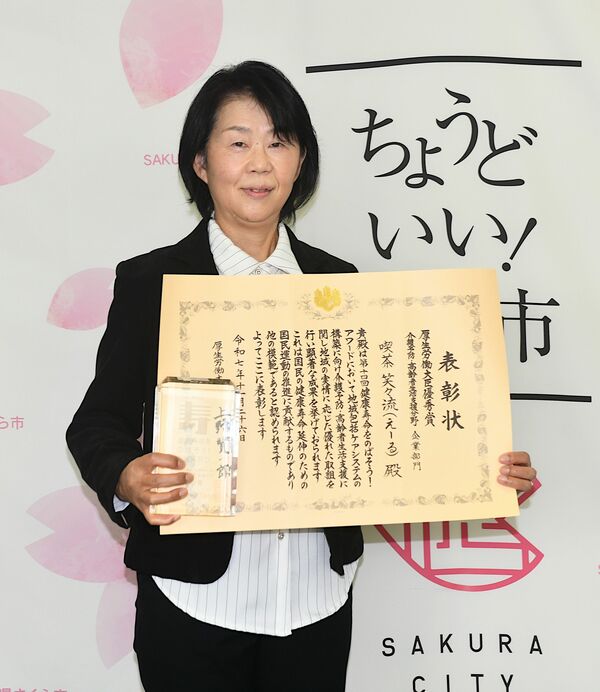 ちょうど
いい!
市
SAKURA
表彰状
厚生労働大臣優秀賞
介護予防・高齢者生活支援分野 企業部門
喫茶 笑々流(えーる) 殿
貴殿は第十四回健康寿命をのばそう!
アワードにおいて地域包括ケアシステムの
構築に向け介護予防・高齢者生活支援に
関し地域の実情に応じた優れた取組を
行い顕著な成果を挙げておられます
これは国民の健康寿命延伸のための
国民運動の推進に貢献するものであり
他の模範であると認められます
よってここに表彰します
令和七年十一月二十六日
厚生労働
SAKURA
CITY
ら市
さくら市